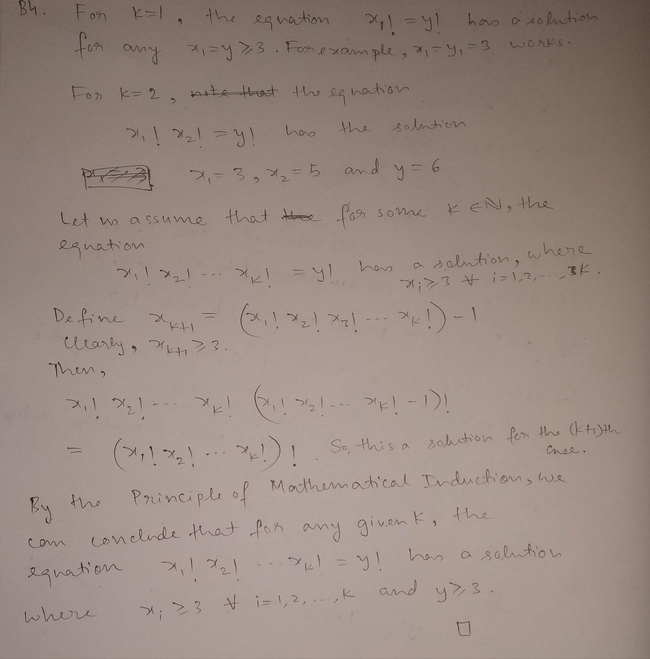 B4. For k=1, the equation x₁! = y! has a solution
for any x₁=y≥3. For example, x₁=y₁=3 works.
For k=2, note that the equation
x₁! x₂! = y! has the solution
x₁=3, x₂=5 and y=6
Let us assume that for some k ∈ ℕ, the
equation
x₁! x₂! ... xₖ! = y! has a solution, where
xᵢ≥3 ∀ i=1,2,...,k.
Define xₖ₊₁ = (x₁! x₂! x₃! ... xₖ!) - 1
Clearly, xₖ₊₁≥3.
Then,
x₁! x₂! ... xₖ! (x₁! x₂! ... xₖ! - 1)!
= (x₁! x₂! ... xₖ!)! . So, this a solution for the (k+1)th
case.
By the Principle of Mathematical Induction, we
can conclude that for any given k, the
equation x₁! x₂! ... xₖ! = y! has a solution
where xᵢ ≥ 3 ∀ i=1,2,...,k and y≥3.
□